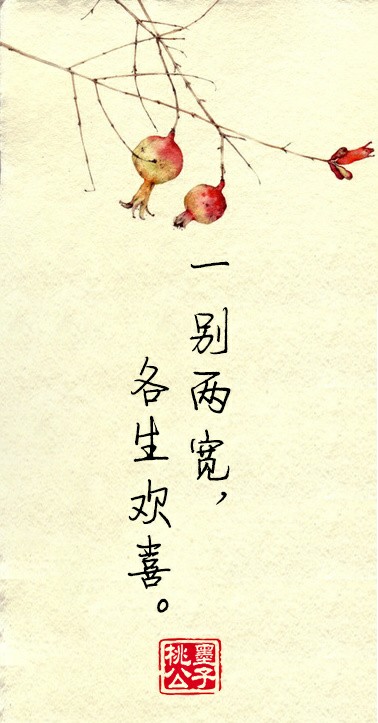 一别两宽，
各生欢喜。
墨子
桃公